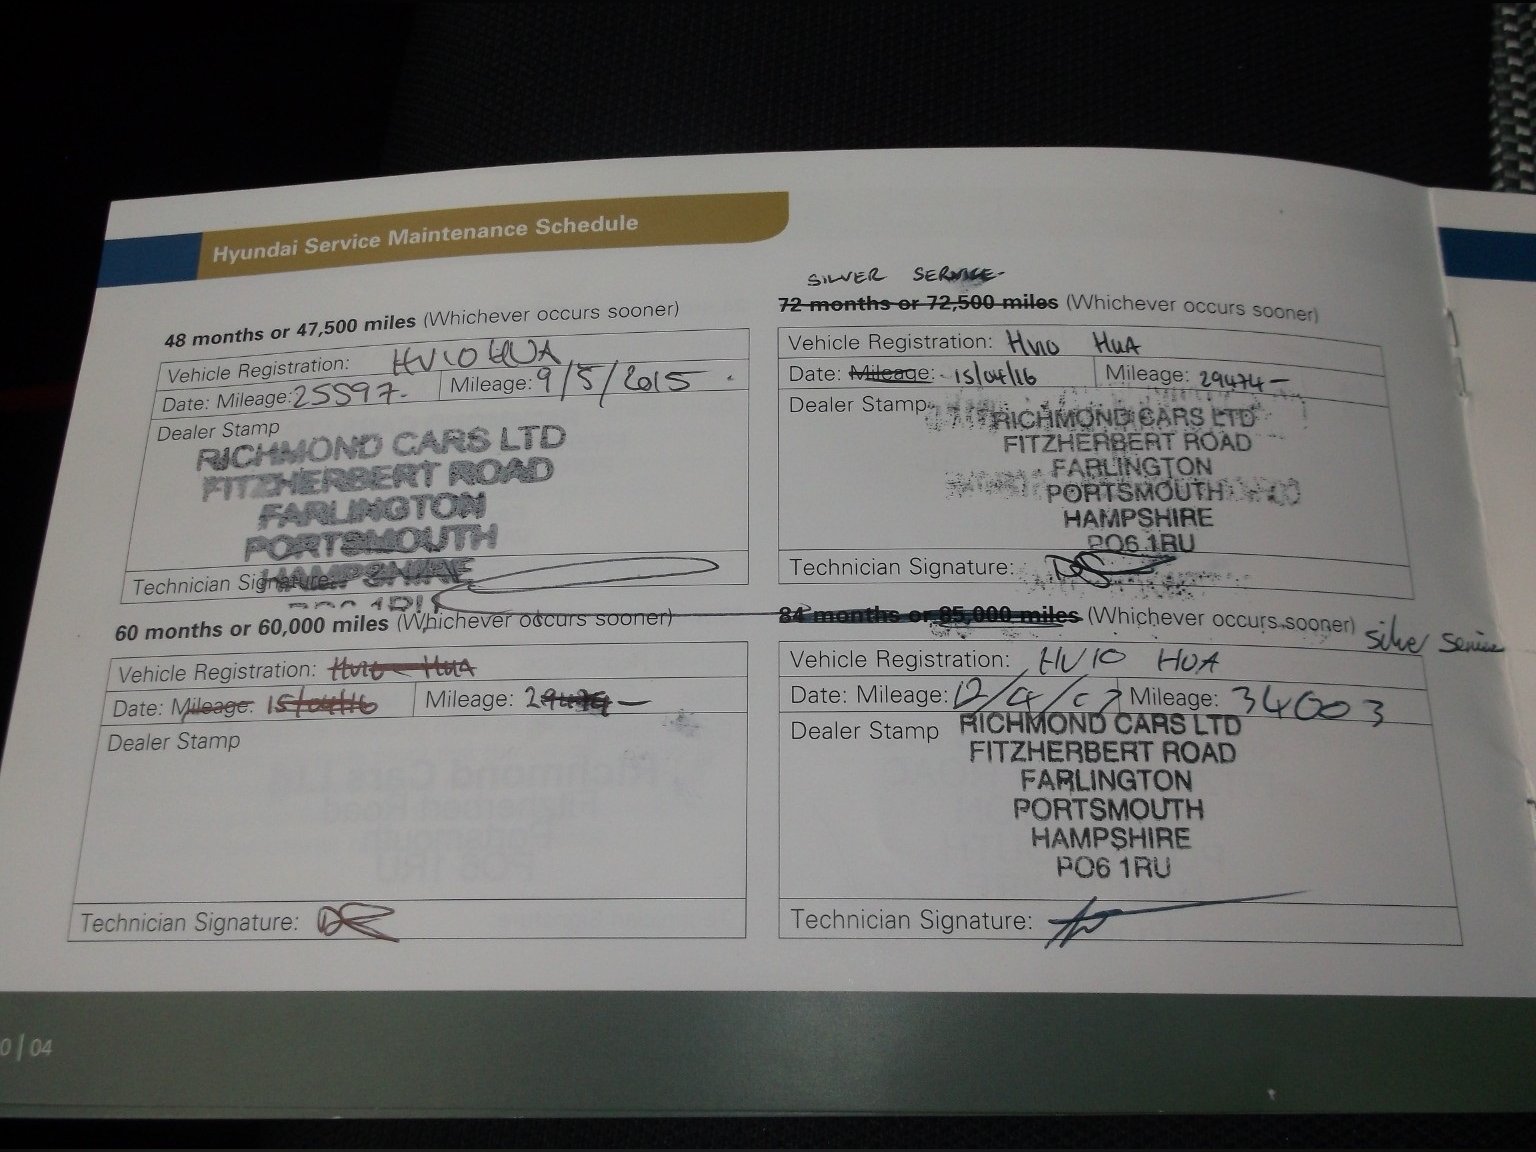 Hyundai Service Maintenance Schedule
48 months or 47,500 miles (Whichever occurs sooner)
Vehicle Registration: HV10 HUA
Date: Mileage: 25597. Mileage: 9/5/2015 .
Dealer Stamp
RICHMOND CARS LTD
FITZHERBERT ROAD
FARLINGTON
PORTSMOUTH
HAMPSHIRE
Technician Signature:
60 months or 60,000 miles (Whichever occurs sooner)
Vehicle Registration: HV10 HUA
Date: Mileage: 15/04/16 Mileage: 29474 –
Dealer Stamp
Technician Signature:
SILVER SERVICE
72 months or 72,500 miles (Whichever occurs sooner)
Vehicle Registration: HV10 HUA
Date: Mileage: 15/04/16 Mileage: 29474 –
Dealer Stamp
RICHMOND CARS LTD
FITZHERBERT ROAD
FARLINGTON
PORTSMOUTH
HAMPSHIRE
PO6 1RU
Technician Signature:
84 months or 85,000 miles (Whichever occurs sooner) Silver Service
Vehicle Registration: HV10 HUA
Date: Mileage: 12/4/17 Mileage: 34003
Dealer Stamp
RICHMOND CARS LTD
FITZHERBERT ROAD
FARLINGTON
PORTSMOUTH
HAMPSHIRE
PO6 1RU
Technician Signature:
0 | 04